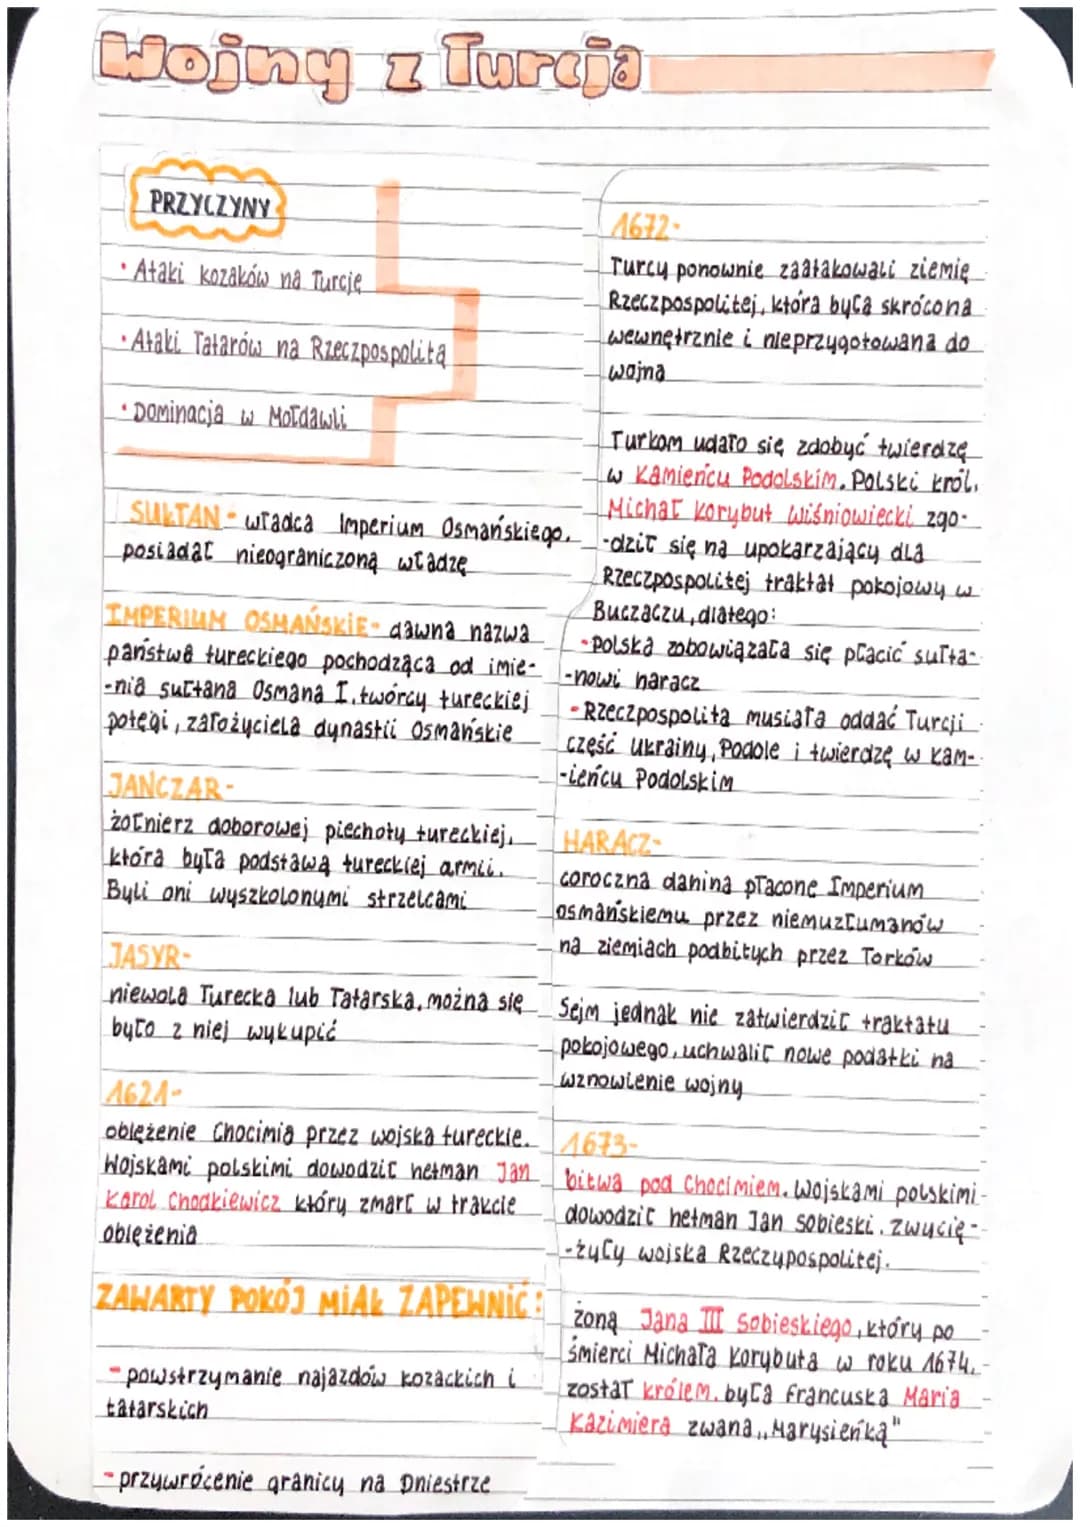 Wojny z Turcją
PRZYCZYNY
• Ataki kozaków na Turcję
• Ataki Tatarów na Rzeczpospolitą
• Dominacja w Mołdawli
SUŁTAN - władca Imperium Osmańskiego.
posiadał nieograniczoną władzę
IMPERIUM OSMAŃSKIE - dawna nazwa
państwa tureckiego pochodząca od imie-
-nia sułtana Osmana I. twórcy tureckiej
potęgi, założyciela dynastii Osmańskie
JANCZAR -
żołnierz doborowej piechoty tureckiej,
która była podstawą tureckiej armii.
Byli oni wyszkolonymi strzelcami
JASYR -
niewola Turecka lub Tatarska. można się
było z niej wykupić
1621 -
oblężenie Chocimia przez wojska tureckie.
Wojskami polskimi dowodził hetman Jan
Karol Chodkiewicz który zmarł w trakcie
oblężenia
ZAWARTY POKÓJ MIAŁ ZAPEWNIĆ:
- powstrzymanie najazdów kozackich i
tatarskich
- przywrócenie granicy na Dniestrze
1672 -
Turcy ponownie zaatakowali ziemię
Rzeczpospolitej, która była skrócona
wewnętrznie i nieprzygotowana do
wojna
Turkom udało się zdobyć twierdzę
w Kamieńcu Podolskim. Polski król.
Michał Korybut Wiśniowiecki zgo-
-dził się na upokarzający dla
Rzeczpospolitej traktat pokojowy w
Buczaczu, dlatego:
- Polska zobowiązała się płacić sułta-
-nowi haracz
- Rzeczpospolita musiała oddać Turcji
część Ukrainy, Podole i twierdzę w Kam-
-ieńcu Podolskim
HARACZ -
coroczna danina płacone Imperium
osmańskiemu przez niemuzłumanów
na ziemiach podbitych przez Torków
Sejm jednak nie zatwierdził traktatu
pokojowego, uchwalił nowe podatki na
wznowienie wojny
1673 -
bitwa pod Chocimiem. Wojskami polskimi
dowodził hetman Jan Sobieski. Zwycię-
-żyły wojska Rzeczypospolitej.
żoną Jana III Sobieskiego, który po
śmierci Michała Korybuta w roku 1674.
został królem. była francuska Maria
Kazimiera zwana „Marysieńką"